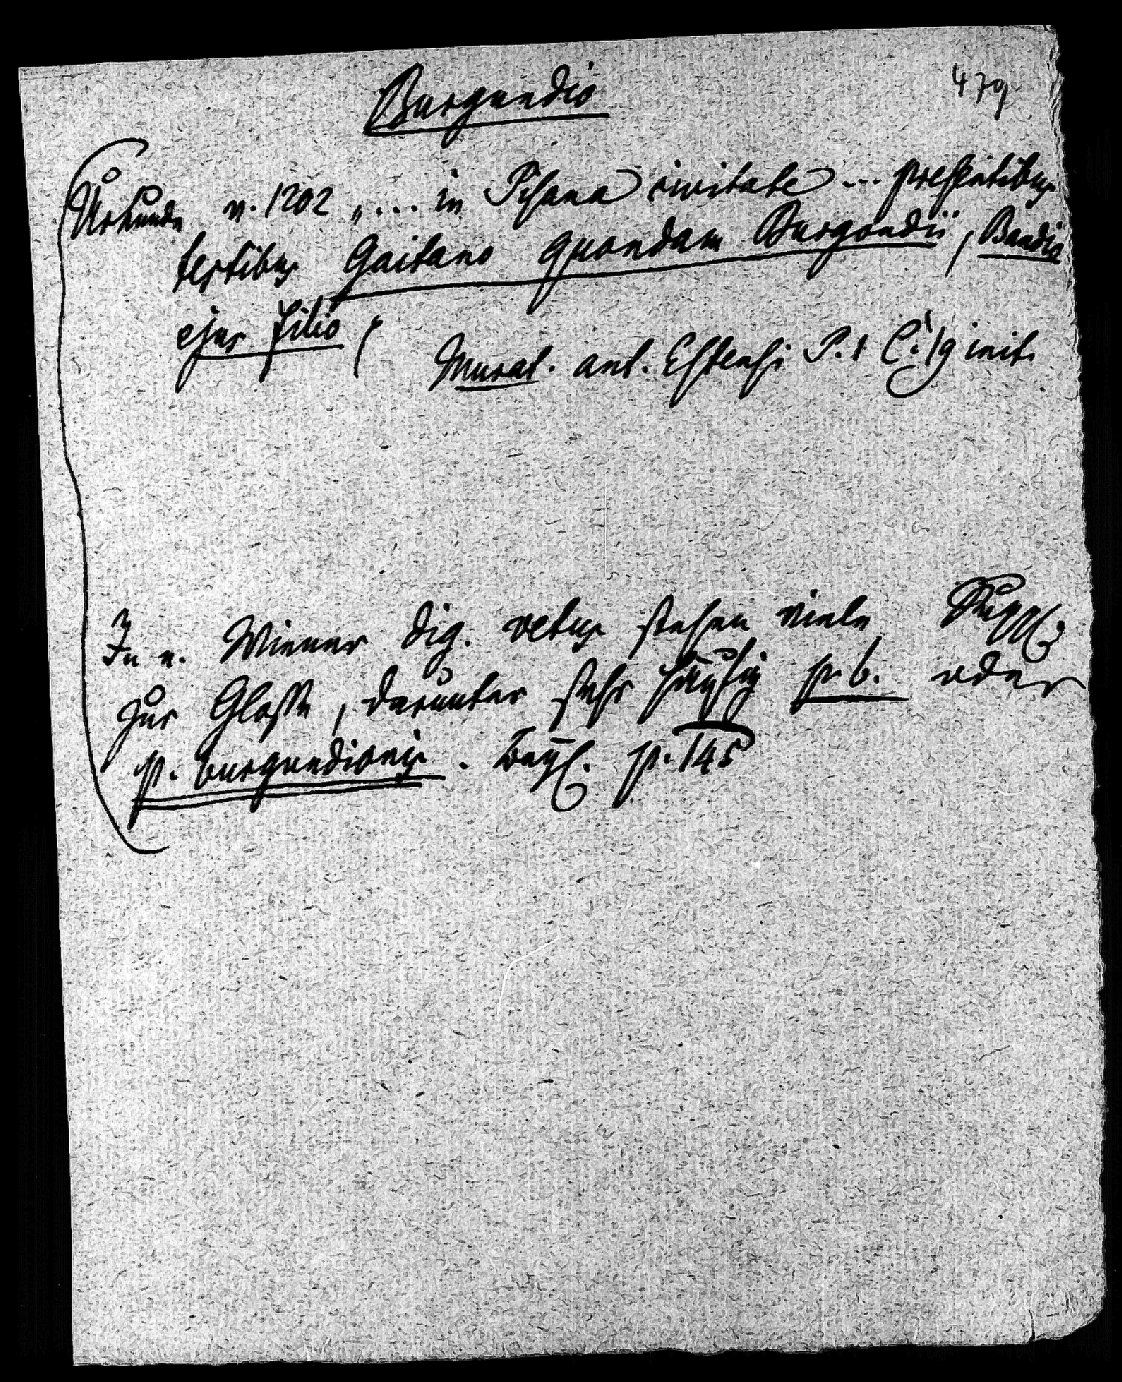 Burgundio
479
Urkunde v. 1202 „... in Pisana civitate ... presentibus
testibus Gaitano quondam Burgondii, Bandin
ejus filio (
Murat. ant. Estensi P. 1 C. 19 init.
In e. Wiener Dig. vetus stehen viele Suppl.
zur Glosse, darunter sehr häufig p. b. oder
p. burgundionis. p. 145